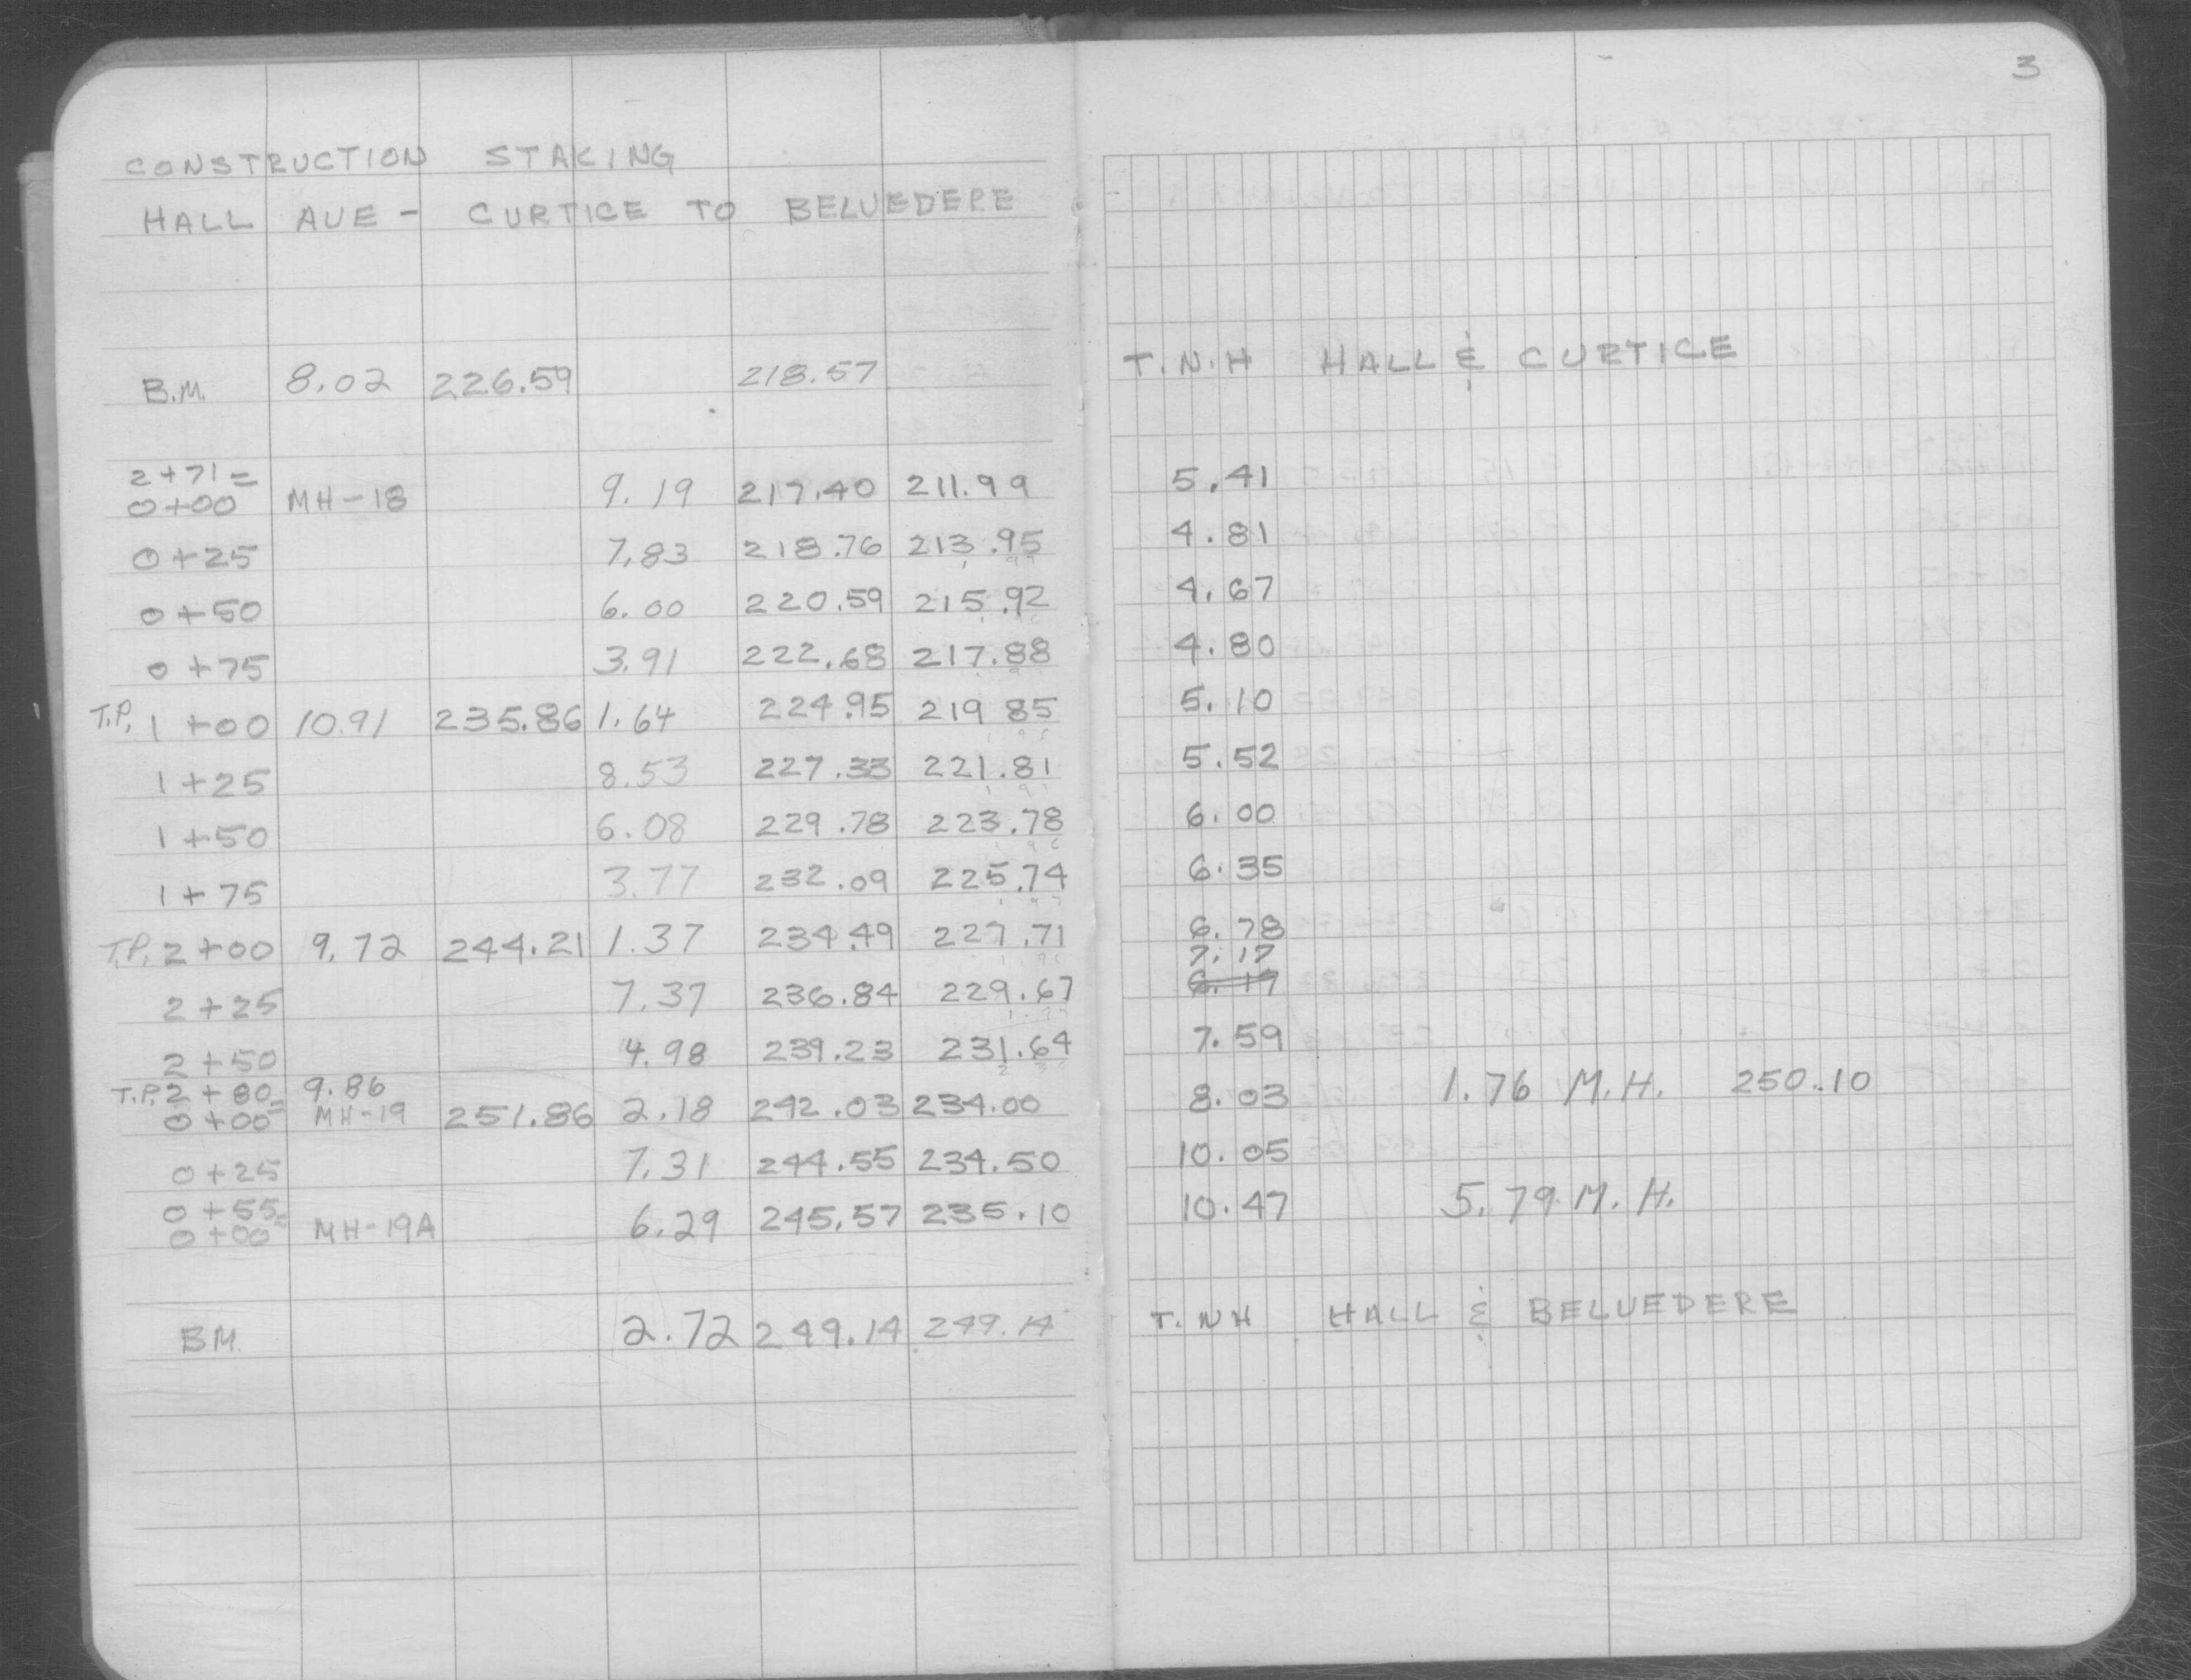 3
CONSTRUCTION STAKING
HALL AVE - CURTICE TO BELVEDERE
B.M. 8.02 226.59 218.57 T.N.H HALL & CURTICE
2+71=
0+00 MH-18 9.19 217.40 211.99 5.41
0+25 7.83 218.76 213.95 4.81
0+50 6.00 220.59 215.92 4.67
0+75 3.91 222.68 217.88 4.80
T.P. 1+00 10.91 235.86 1.64 224.95 219 85 5.10
1+25 8.53 227.33 221.81 5.52
1+50 6.08 229.78 223.78 6.00
1+75 3.77 232.09 225.74 6.35
T.P. 2+00 9.72 244.21 1.37 234.49 227.71 6.78
7.17
2+25 7.37 236.84 229.67 6.17
2+50 4.98 239.23 231.64 7.59
T.P. 2+80= 9.86
0+00 MH-19 251.86 2.18 242.03 234.00 8.03 1.76 M.H. 250.10
0+25 7.31 244.55 234.50 10.05
0+55=
0+00 MH-19A 6.29 245.57 235.10 10.47 5.79 M.H.
BM. 2.72 249.14 249.14 T.NH HALL & BELVEDERE